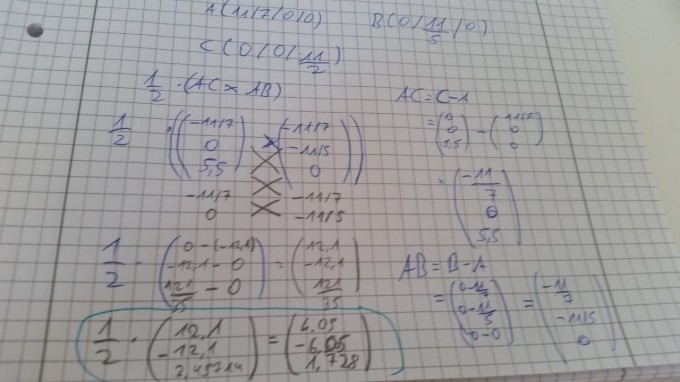 A(11/7/0/0) B(0/11/5/0)
C(0/0/11/2)
1/2 · (AC × AB)
AC = C-A
= (0 0 5,5) - (11/7 0 0)
1/2 · ((-11/7 0 5,5) × (-11/7 -11/5 0))
-11/7 -11/7
0 -11/5
= (-11/7 0 5,5)
1/2 · (0-(-12,1) -12,1-0 121/35 - 0) = (12,1 -12,1 121/35)
AB = B-A
= (0-11/7 0-11/5 0-0) = (-11/7 -11/5 0)
1/2 · (12,1 -12,1 3,45714) = (6,05 -6,05 1,728)